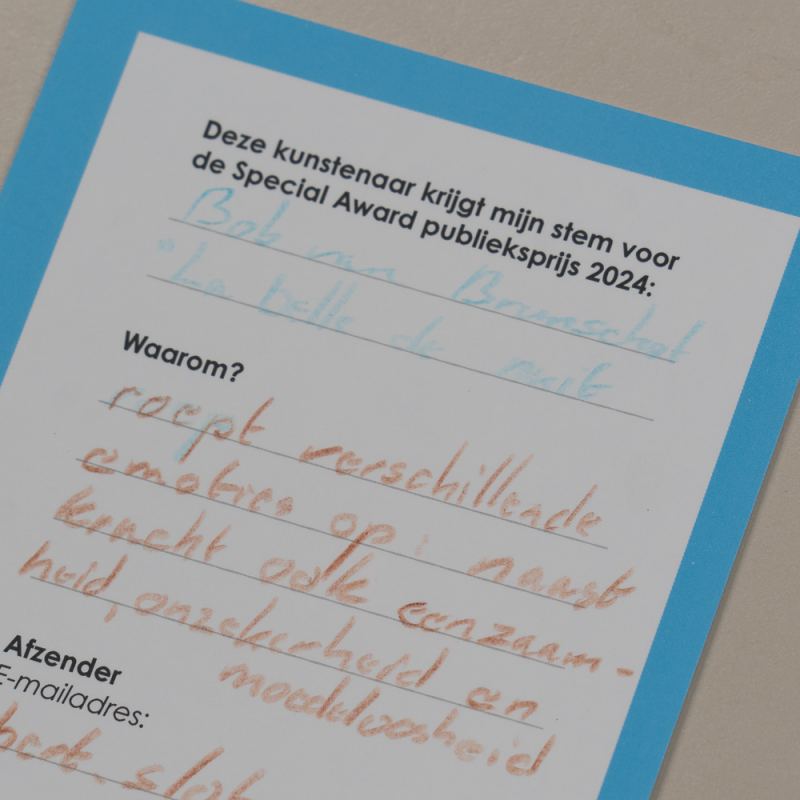 Deze kunstenaar krijgt mijn stem voor
de Special Award publieksprijs 2024:
Bob van Brunschot
"La belle de nuit
Waarom?
roept verschillende
emoties op: naast
kracht ook eenzaam-
heid, onzekerheid en
moedeloosheid
Afzender
E-mailadres:
bert.slot